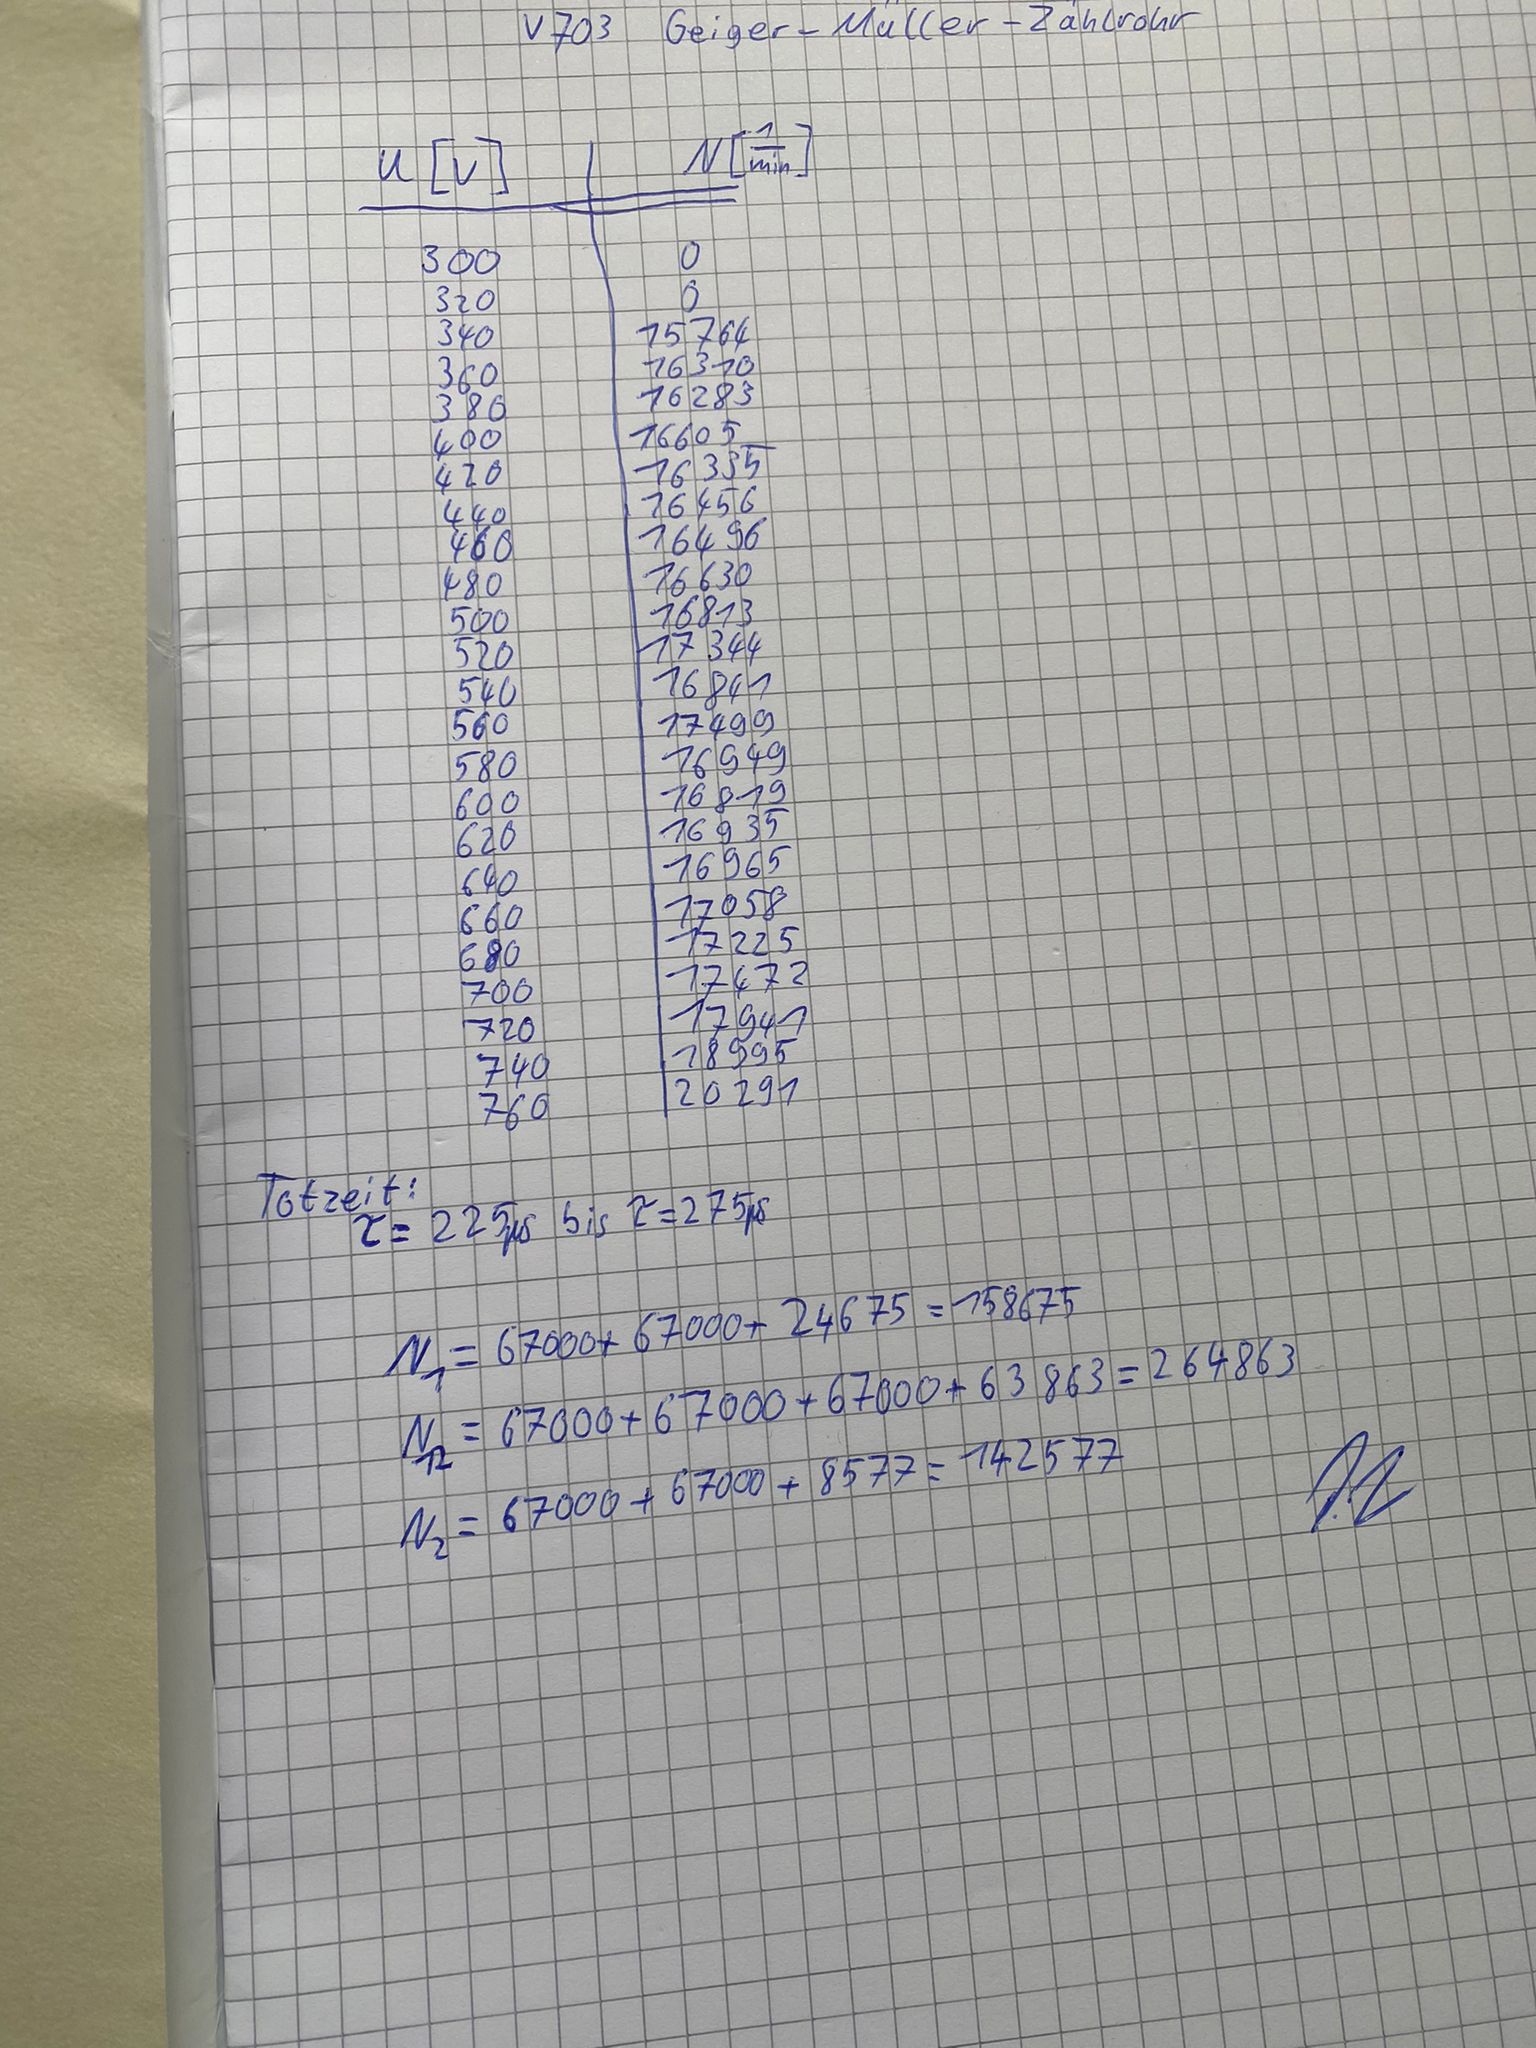 V703 Geiger-Müller-Zählrohr
U [V] N [1/min]
300 0
320 0
340 15764
360 16310
380 16283
400 16605
420 16335
440 16456
460 16496
480 16630
500 16813
520 17344
540 16841
560 17499
580 16949
600 16819
620 16935
640 16965
660 17058
680 17225
700 17472
720 17941
740 18995
760 20291
Totzeit:
τ = 225µs bis τ = 275µs
N₁ = 67000 + 67000 + 24675 = 158675
N₁₂ = 67000 + 67000 + 67000 + 63863 = 264863
N₂ = 67000 + 67000 + 8577 = 142577